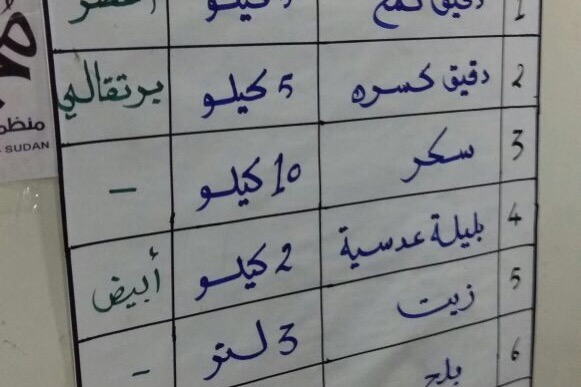 1 دقيق قمح كيلو أخضر
2 دقيق كسره 5 كيلو برتقالي
3 سكر 10 كيلو -
4 بليلة عدسية 2 كيلو أبيض
5 زيت 3 لتر -
6 بلح
منظمة
SUDAN